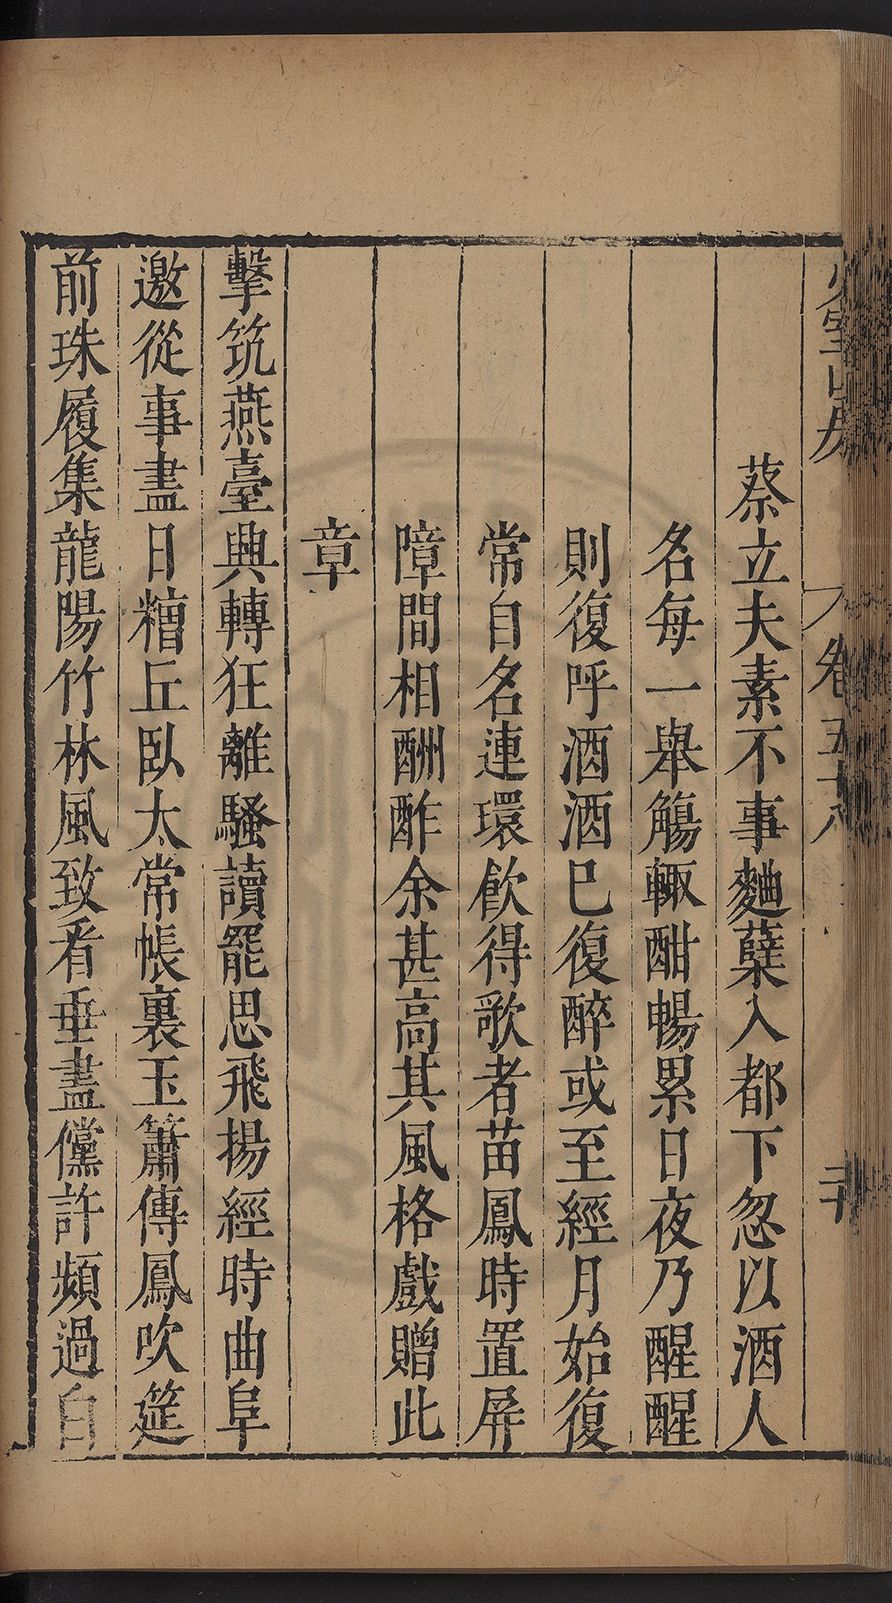 少室山房
卷五十八
二十
蔡立夫素不事麯蘖入都下忽以酒人
名每一舉觴輒酣暢累日夜乃醒醒
則復呼酒酒巳復醉或至經月始復
常自名連環飲得歌者苗鳳時置屏
障間相酬酢余甚高其風格戲贈此
章
擊筑燕臺興轉狂離騷讀罷思飛揚經時曲阜
邀從事盡日糟丘臥太常帳裏玉簫傳鳳吹筵
前珠履集龍陽竹林風致看垂盡儻許頻過自